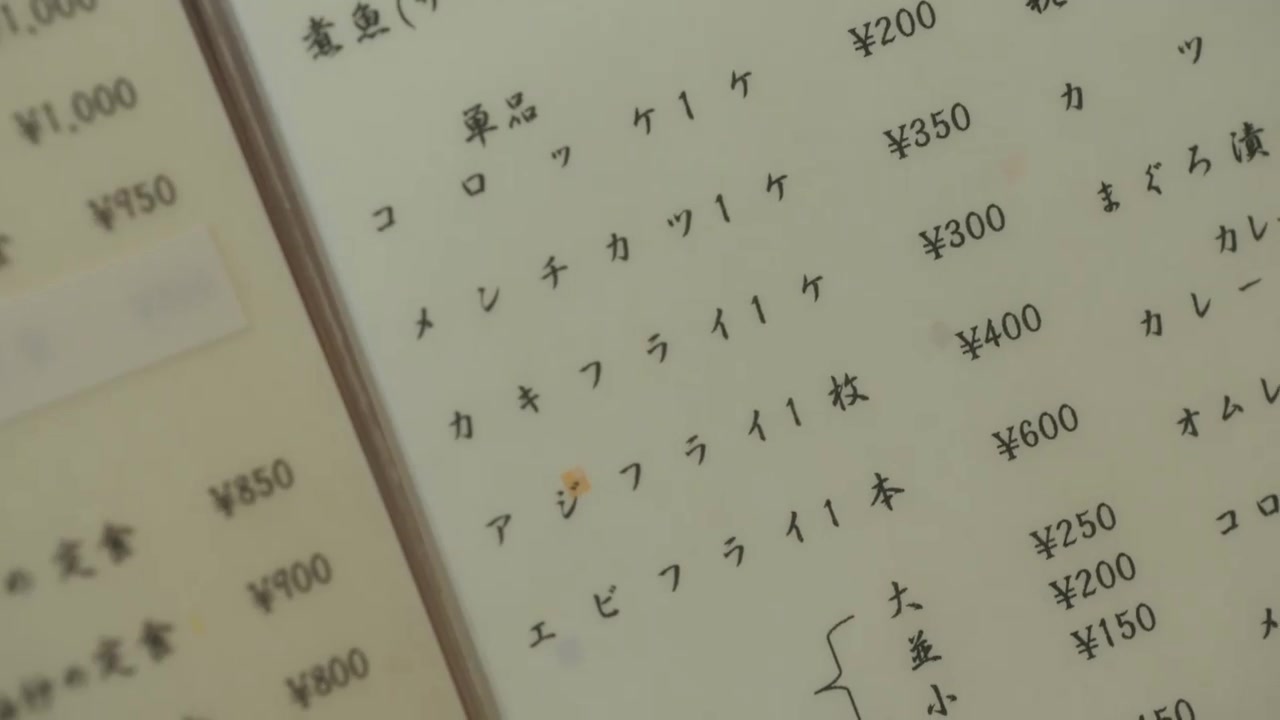 ¥1,000
¥1,000
¥950
の定食 ¥850
の定食 ¥900
¥800
煮魚(
単品
コロッケ1ケ ¥200
メンチカツ1ケ ¥350
カキフライ1ケ ¥300
アジフライ1枚 ¥400
エビフライ1本 ¥600
大 ¥250
並 ¥200
小 ¥150
カツ
まぐろ漬
カレ
カレー
オムレ
コロ
メ